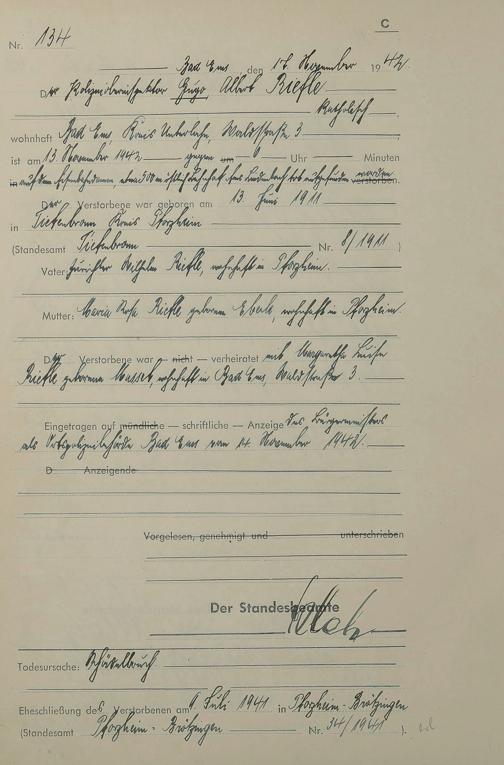 C
Nr. 134
Bad Ems, den 17. November 1942.
Der Polizeioberinspektor Hugo Albert Riefle
katholisch
wohnhaft Bad Ems Kreis Unterlahn, Waldstraße 3
ist am 13. November 1942 gegen um 0 Uhr Minuten
in auf dem Eisenbahndamm, etwa 500 östlich tot aufgefunden worden verstorben.
Der Verstorbene war geboren am 13. Juni 1911
in Tiefenbronn Kreis Pforzheim
(Standesamt Tiefenbronn Nr. 8/1911)
Vater: Wilhelm Riefle, wohnhaft in Pforzheim.
Mutter: Maria Rosa Riefle geborene Eberle, wohnhaft in Pforzheim.
Der Verstorbene war — nicht — verheiratet mit Margaretha Luise
Riefle geborene wohnhaft in Bad Ems, Waldstraße 3.
Eingetragen auf mündliche — schriftliche — Anzeige des Bürgermeisters
als Ortspolizeibehörde Bad Ems vom 14. November 1942.
D Anzeigende
Vorgelesen, genehmigt und unterschrieben
Der Standesbeamte
Todesursache: Schädelbruch
Eheschließung des Verstorbenen am 9. Juli 1941 in Pforzheim-Brötzingen
(Standesamt Pforzheim-Brötzingen Nr. 34/1941)